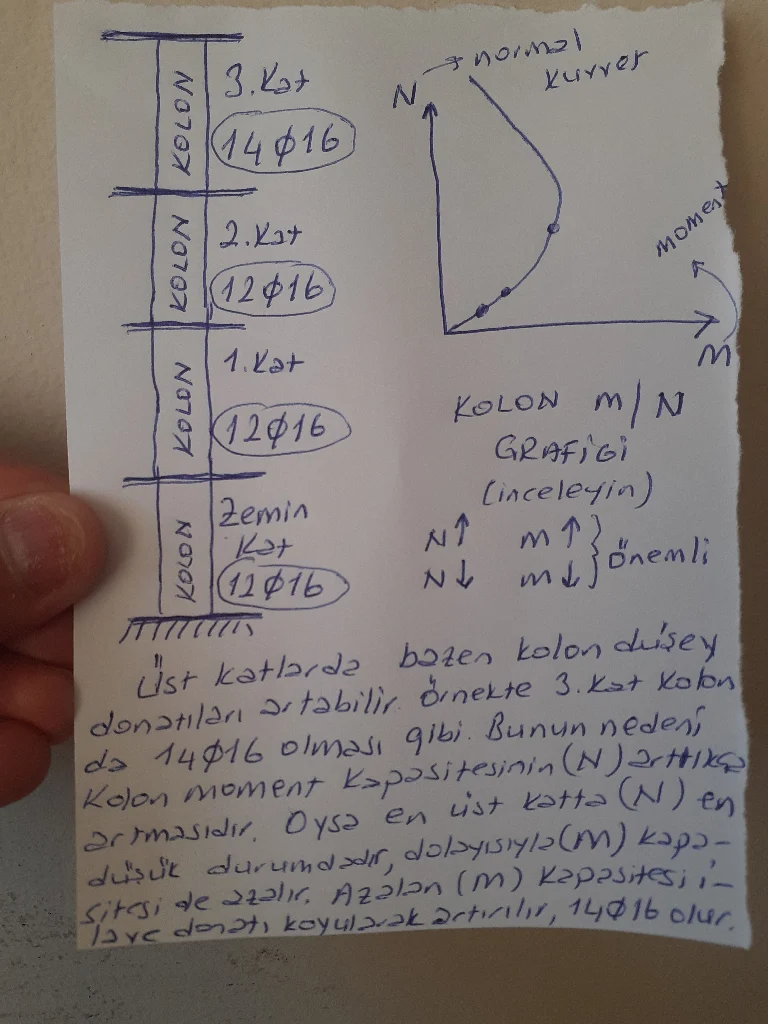 KOLON
3.Kat
14ϕ16
KOLON
2.Kat
12ϕ16
KOLON
1.Kat
12ϕ16
KOLON
Zemin
Kat
12ϕ16
N → normal
kuvvet
moment
M
KOLON M/N
GRAFİGİ
(inceleyin)
N↑ M↑
N↓ M↓ } önemli
Üst katlarda bazen kolon düşey
donatıları artabilir. Örnekte 3.Kat Kolon
da 14ϕ16 olması gibi. Bunun nedeni
Kolon moment kapasitesinin (N) arttıkça
artmasıdır. Oysa en üst katta (N) en
düşük durumdadır, dolayısıyla (M) kapa-
sitesi de azalır. Azalan (M) kapasitesi i-
lave donatı koyularak artırılır, 14ϕ16 olur.